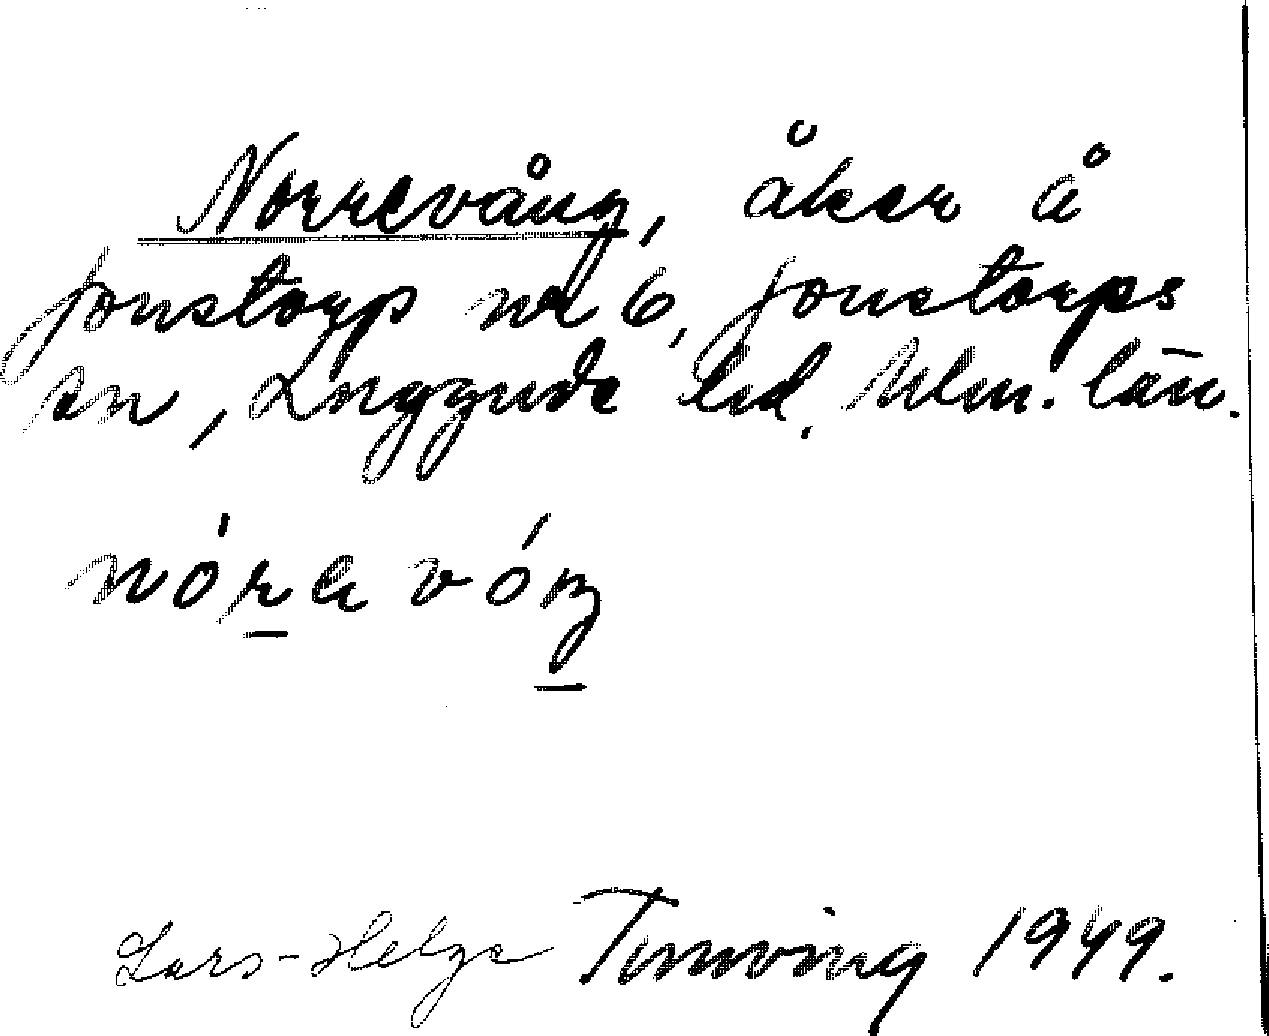 Norrevång, åker å
Jonstorp nr 6, Jonstorps
sn, Luggude hd, Mlm. län.
nóra vóŋ
Lars-Helge Tunving 1949.